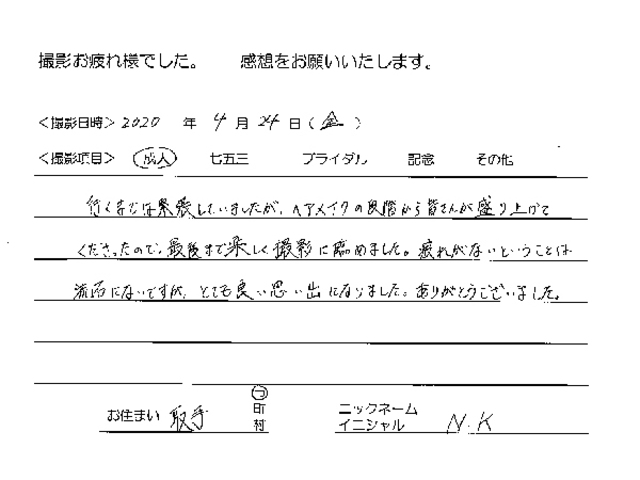 撮影お疲れ様でした。 感想をお願いいたします。
<撮影日時> 2020 年 4 月 24 日 (金)
<撮影項目> 成人 七五三 ブライダル 記念 その他
行くまでは緊張していましたが、ヘアメイクの段階から皆さんが盛り上げて
くださったので、最後まで楽しく撮影に臨めました。疲れがないということは
流石にないですが、とても良い思い出になりました。ありがとうございました。
お住まい 取手 町 村
ニックネーム
イニシャル N.K